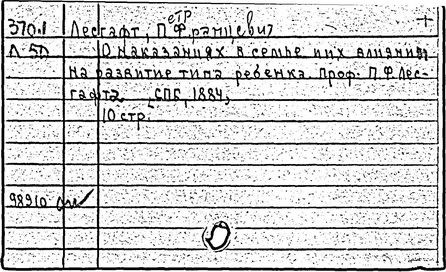 370.1 Лесгафт, П.етр Францевич +
Л 50 О наказаниях в семье и их влиянии
на развитие типа ребенка. Проф. П.Ф. Лес-
гафта. СПб, 1884,
10 стр.
98910